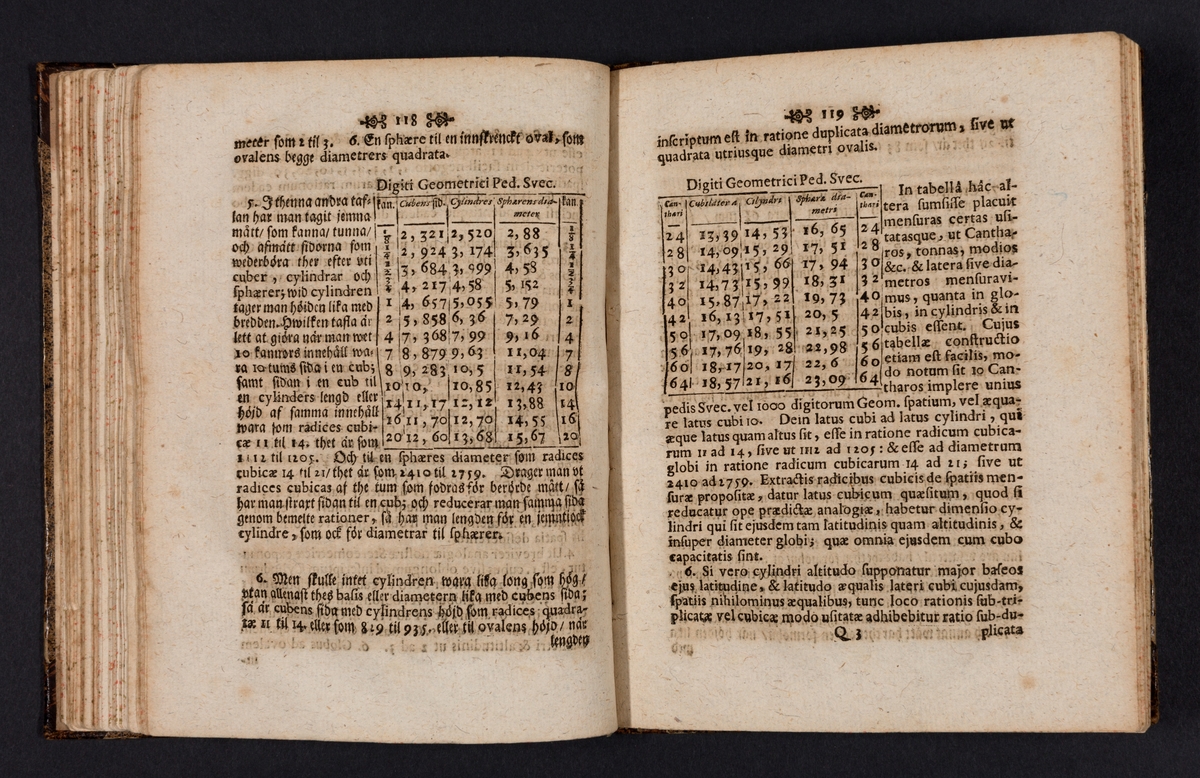 118
meter som 2 til 3. 6. En sphære til en innskrenckt oval, som
ovalens begge diametrers quadrata.
Digiti Geometrici Ped. Svec.
5. I thenna andra taf-
lan har man tagit jemna
mått / som kanna / tunna /
och afmått sidorna som
wederböra ther efter vti
cuber, cylindrar och
sphærer; wid cylindren
tager man höjden lika med
bredden. Hwilken tafla är
lett at giöra när man wet
10 kannors innehåll wa-
ra 10 tums sida i en cub;
samt sidan i en cub til
en cylinders lengd eller
höjd af samma innehåll
wara som radices cubi-
cæ 11 til 14, thet är som
kan. Cubens sid. Cylindres Sphærens dia-meter kan
1/8 2, 321 2, 520 2, 88 1/8
1/4 2, 924 3, 174 3, 635 1/4
1/2 3, 684 3, 999 4, 58 1/2
3/4 4, 217 4, 58 5, 152 3/4
1 4, 657 5,055 5, 79 1
2 5, 858 6, 36 7, 29 2
4 7, 368 7, 99 9, 16 4
7 8, 879 9, 63 11,04 7
8 9, 283 10, 5 11, 54 8
10 10, 10,85 12, 43 10
14 11, 17 12, 12 13,88 14
16 11, 70 12, 70 14, 55 16
20 12, 60 13, 68 15, 67 20
1112 til 1205. Och til en sphæres diameter som radices
cubicæ 14 til 21 / thet är som 2410 til 2759. Drager man vt
radices cubicas af the tum som fodras för berörde mått / så
har man straxt sidan til en cub; och reducerar man samma sida
genom bemelte rationer, så har man lengden för en jemntiock
cylindre, som ock för diametrar til sphærer.
6. Men skulle intet cylindren wara lika long som hög /
vtan allenast thes basis eller diametern lika med cubens sida;
så är cubens sida med cylindrens höjd som radices quadra-
tæ 11 til 14. eller som 829 til 935. eller til ovalens höjd / när
lengden
119
inscriptum est in ratione duplicata diametrorum, sive ut
quadrata utriusque diametri ovalis.
Digiti Geometrici Ped. Svec.
Can-thari Cubilatera Cilyndri Sphæræ dia-metri Can-thari
24 13,39 14, 53 16, 65 24
28 14,09 15, 29 17, 51 28
30 14,43 15, 66 17, 94 30
32 14,73 15, 99 18, 31 32
40 15,87 17, 22 19, 73 40
42 16, 13 17, 51 20, 5 42
50 17,09 18, 55 21, 25 50
56 17,76 19, 28 22,98 56
60 18,17 20, 17 22, 6 60
64 18,57 21, 16 23,09 64
In tabellâ hâc al-
tera sumsisse placuit
mensuras certas usi-
tatasque, ut Cantha-
ros, tonnas, modios
&c. & latera sive dia-
metros mensuravi-
mus, quanta in glo-
bis, in cylindris & in
cubis essent. Cujus
tabellæ constructio
etiam est facilis, mo-
do notum sit 10 Can-
tharos implere unius
pedis Svec. vel 1000 digitorum Geom. spatium, vel æqua-
re latus cubi 10. Dein latus cubi ad latus cylindri, qui
æque latus quam altus sit, esse in ratione radicum cubica-
rum 11 ad 14, sive ut 1112 ad 1205: & esse ad diametrum
globi in ratione radicum cubicarum 14 ad 21; sive ut
2410 ad 2759. Extractis radicibus cubicis de spatiis men-
suræ propositæ, datur latus cubicum quæsitum, quod si
reducatur ope prædictæ analogiæ, habetur dimensio cy-
lindri qui sit ejusdem tam latitudinis quam altitudinis, &
insuper diameter globi; quæ omnia ejusdem cum cubo
capacitatis sint.
6. Si vero cylindri altitudo supponatur major baseos
ejus latitudine, & latitudo æqualis lateri cubi cujusdam,
spatiis nihilominus æqualibus, tunc loco rationis sub-tri-
plicatæ vel cubicæ modo usitatæ adhibebitur ratio sub-du-
Q 3 plicata